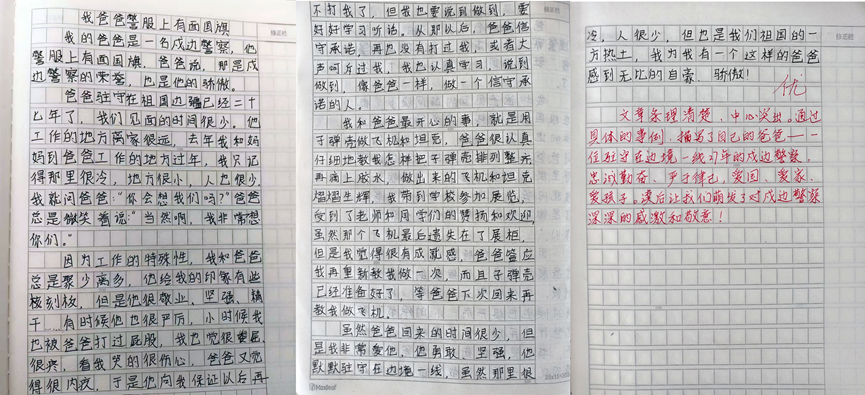 我爸爸警服上有面国旗
我的爸爸是一名戍边警察，他
警服上有面国旗，爸爸说，那是戍
边警察的荣誉，也是他的骄傲。
爸爸驻守在祖国边疆已经二十
七年了，我们见面的时间很少。他
工作的地方离家很远，去年我和妈
妈到爸爸工作的地方过年，我只记
得那里很冷，地方很小，人也很少
我就问爸爸：“你会想我们吗？”爸爸
总是微笑着说：“当然啊，我非常想
你们。”
因为工作的特殊性，我和爸爸
总是聚少离多，他给我的印象有些
模刻板，但是他很敬业、坚强、精
干，有时候他也很严厉，小时候我
也被爸爸打过屁股，我也觉很委屈，
很疼，看我哭的很伤心，爸爸又觉
得很内疚，于是他向我保证以后再
不打我了，但我也要说到做到，要
好好学习听话。从那以后，爸爸信
守承诺，再也没有打过我，或者大
声呵斥过我，我也认真学习，说到
做到，像爸爸一样，做一个信守承
诺的人。
我和爸爸最开心的事，就是用
子弹壳做飞机和坦克，爸爸很认真
仔细地教我怎样把子弹壳排列整齐
再滴上胶水，做出来的飞机和坦克
熠熠生辉，我带到学校参加展览，
受到了老师和同学们的赞扬和欢迎
虽然那个飞机最后遗失在了展柜，
但是我觉得很有成就感，爸爸答应
我再重新教我做一次，而且子弹壳
已经准备好了，等爸爸下次回来再
教我做飞机。
虽然爸爸回来的时间很少，但
是我非常爱他。他勇敢、坚强，他
默默驻守在边境一线，虽然那里很
冷，人很少，但也是我们祖国的一
方热土，我为我有一个这样的爸爸
感到无比的自豪、骄傲！
优
文章条理清楚，中心突出。通过
具体的事例，描写了自己的爸爸——
位驻守在边境一线的戍边警察，
忠诚勤奋、严于律己，爱国、爱家、
爱孩子。读后让我们萌发了对戍边警察
深深的感激和敬意！